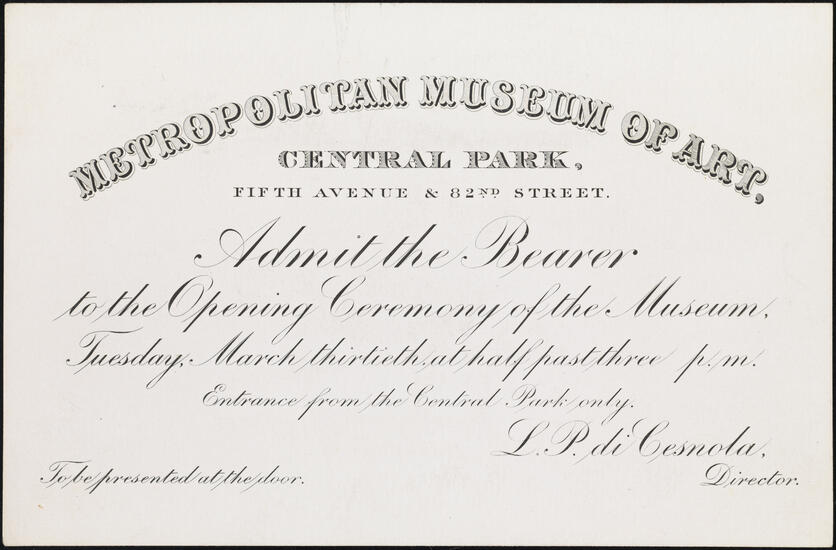 METROPOLITAN MUSEUM OF ART,
CENTRAL PARK,
FIFTH AVENUE & 82ND STREET.
Admit the Bearer
to the Opening Ceremony of the Museum,
Tuesday, March thirtieth, at half past three p.m.
Entrance from the Central Park only.
L. P. di Cesnola,
Director.
To be presented at the door.